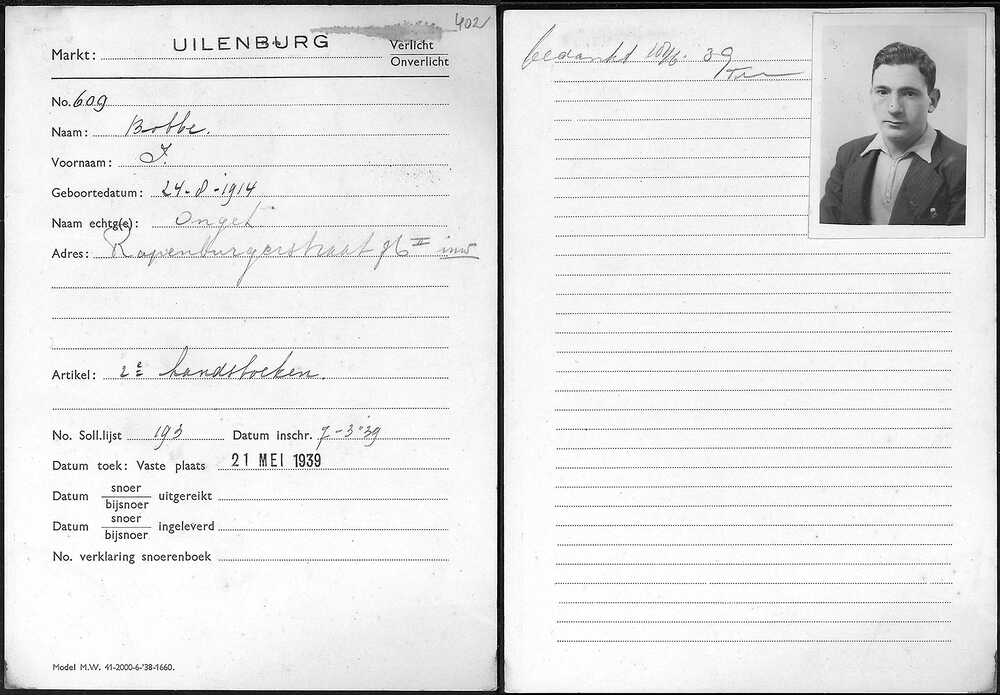 402
Markt: UILENBURG Verlicht
Onverlicht
No. 609
Naam: Bobbe.
Voornaam: J.
Geboortedatum: 24-8-1914
Naam echtg(e): Ongeh
Adres: Rapenburgerstraat 96 II inw
Artikel: 2e handsboeken.
No. Soll.lijst 193 Datum inschr. 7-3-39
Datum toek: Vaste plaats 21 MEI 1939
Datum snoer
bijsnoer uitgereikt
Datum snoer
bijsnoer ingeleverd
No. verklaring snoerenboek
Model M.W. 41-2000-6-'38-1660.
bedankt 39